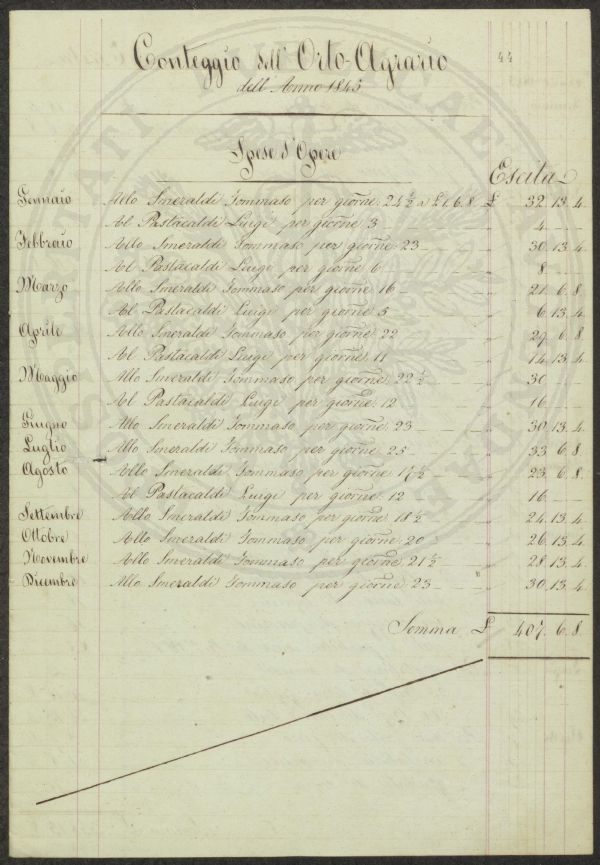 44
Conteggio dell' Orto-Agrario
dell' Anno 1845
Spese d'Opere
Escita
Gennaio Allo Smeraldi Tommaso per giorne 24 ½ a £ 1.6.8 £ 32.13.4
Al Pastacaldi Luigi per giorne 3 4
Febbraio Allo Smeraldi Tommaso per giorne 23 30.13.4
Al Pastacaldi Luigi per giorne 6 8
Marzo Allo Smeraldi Tommaso per giorne 16 21.6.8
Al Pastacaldi Luigi per giorne 5 6.13.4
Aprile Allo Smeraldi Tommaso per giorne 22 29.6.8
Al Pastacaldi Luigi per giorne 11 14.13.4
Maggio Allo Smeraldi Tommaso per giorne 22 ½ 30
Al Pastacaldi Luigi per giorne 12 16
Giugno Allo Smeraldi Tommaso per giorne 23 30.13.4
Luglio Allo Smeraldi Tommaso per giorne 25 33.6.8
Agosto Allo Smeraldi Tommaso per giorne 17 ½ 23.6.8
Al Pastacaldi Luigi per giorne 12 16
Settembre Allo Smeraldi Tommaso per giorne 18 ½ 24.13.4
Ottobre Allo Smeraldi Tommaso per giorne 20 26.13.4
Novembre Allo Smeraldi Tommaso per giorne 21 ½ 28.13.4
Dicembre Allo Smeraldi Tommaso per giorne 23 " 30.13.4
Somma £ 407.6.8